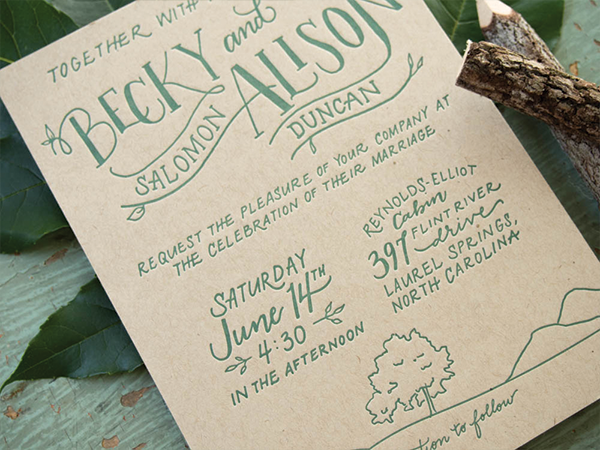 TOGETHER WITH
BECKY and ALISON
SALOMON DUNCAN
REQUEST THE PLEASURE OF YOUR COMPANY AT
THE CELEBRATION OF THEIR MARRIAGE
SATURDAY
June 14TH
4:30
IN THE AFTERNOON
REYNOLDS-ELLIOT
Cabin
397 FLINT RIVER
drive
LAUREL SPRINGS,
NORTH CAROLINA
to follow